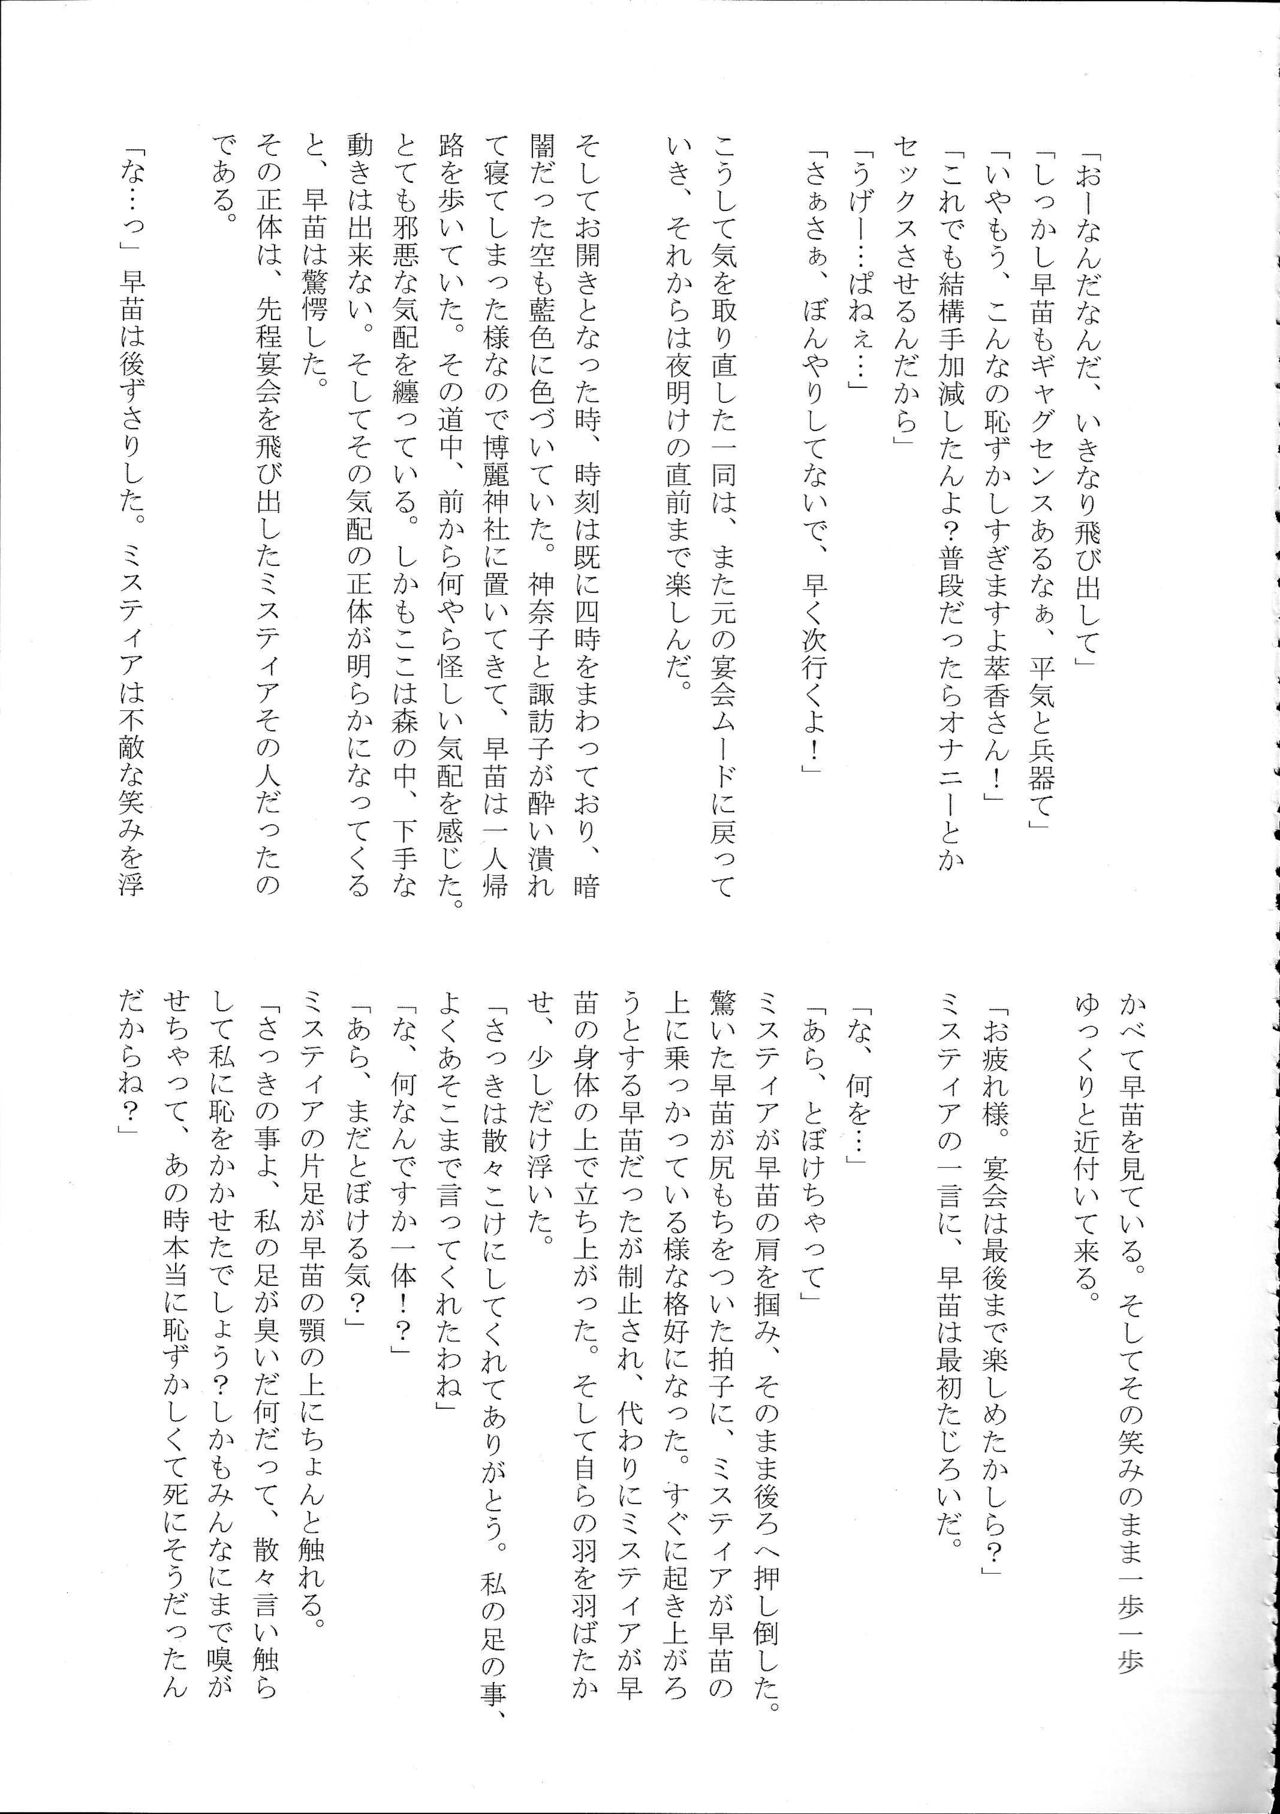 「おーなんだなんだ、いきなり飛び出して」
「しっかし早苗もギャグセンスあるなぁ、平気と兵器て」
「いやもう、こんなの恥ずかしすぎますよ萃香さん！」
「これでも結構手加減したんよ？普段だったらオナニーとか
セックスさせるんだから」
「うげー…ぱねぇ…」
「さぁさぁ、ぼんやりしてないで、早く次行くよ！」
こうして気を取り直した一同は、また元の宴会ムードに戻って
いき、それからは夜明けの直前まで楽しんだ。
そしてお開きとなった時、時刻は既に四時をまわっており、暗
闇だった空も藍色に色づいていた。神奈子と諏訪子が酔い潰れ
て寝てしまった様なので博麗神社に置いてきて、早苗は一人帰
路を歩いていた。その道中、前から何やら怪しい気配を感じた。
とても邪悪な気配を纏っている。しかもここは森の中、下手な
動きは出来ない。そしてその気配の正体が明らかになってくる
と、早苗は驚愕した。
その正体は、先程宴会を飛び出したミスティアその人だったの
である。
「な…っ」早苗は後ずさりした。ミスティアは不敵な笑みを浮
かべて早苗を見ている。そしてその笑みのまま一歩一歩
ゆっくりと近付いて来る。
「お疲れ様。宴会は最後まで楽しめたかしら？」
ミスティアの一言に、早苗は最初たじろいだ。
「な、何を…」
「あら、とぼけちゃって」
ミスティアが早苗の肩を掴み、そのまま後ろへ押し倒した。
驚いた早苗が尻もちをついた拍子に、ミスティアが早苗の
上に乗っかっている様な格好になった。すぐに起き上がろ
うとする早苗だったが制止され、代わりにミスティアが早
苗の身体の上で立ち上がった。そして自らの羽を羽ばたか
せ、少しだけ浮いた。
「さっきは散々こけにしてくれてありがとう。私の足の事、
よくあそこまで言ってくれたわね」
「な、何なんですか一体！？」
「あら、まだとぼける気？」
ミスティアの片足が早苗の顎の上にちょんと触れる。
「さっきの事よ、私の足が臭いだ何だって、散々言い触ら
して私に恥をかかせたでしょう？しかもみんなにまで嗅が
せちゃって、あの時本当に恥ずかしくて死にそうだったん
だからね？」